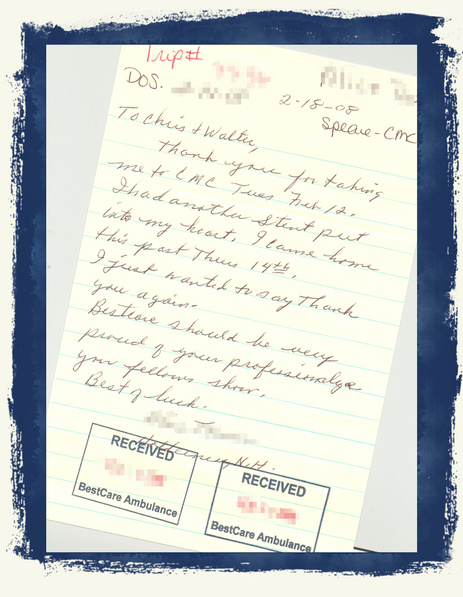 Trip#
DOS.
2-18-08
Speare-CMC
To Chris & Walter,
Thank you for taking
me to CMC Tues Feb 12.
I had another Stent put
into my heart. I came home
this past Thurs 14th.
I just wanted to say Thank
you again.
Bestcare should be very
proud of your professionalyse
you fellows show.
Best of luck.
N.H.
RECEIVED
BestCare Ambulance
RECEIVED
BestCare Ambulance